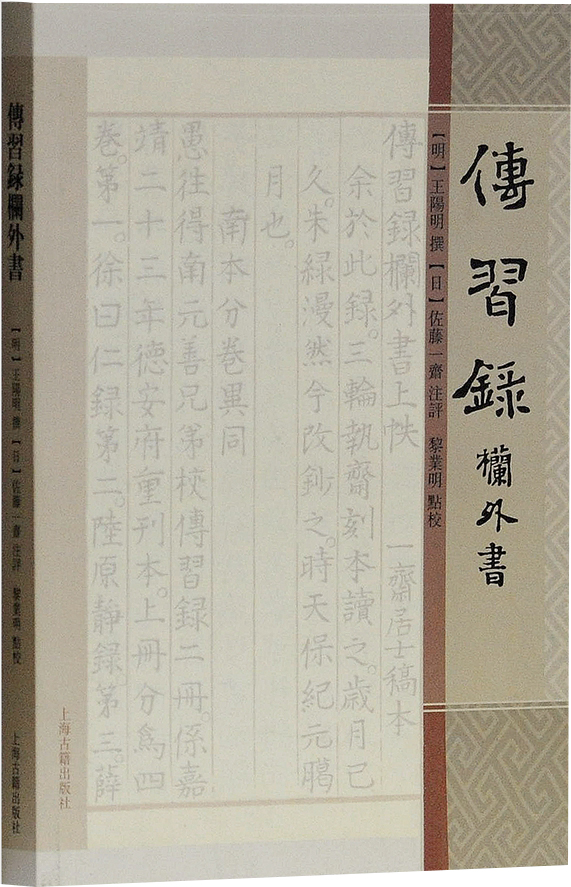 傳習録
欄外書
【明】王陽明 撰 【日】佐藤一齋 注評 黎業明 點校
傳習録欄外書上帙 一齋居士稿本
余於此録。三輪執齋刻本讀之。歳月已
久。朱緑漫然今改鈔之。時天保紀元臈
月也。
南本分巻異同
愚往得南元善兄弟校傳習録二冊。係嘉
靖二十三年德安府重刊本。上冊分爲四
巻。第一。徐曰仁録第二。陸原静録。第三。薛
上海古籍出版社
傳習録欄外書
【明】王陽明 撰 【日】佐藤一齋 注評 黎業明 點校
上海古籍出版社